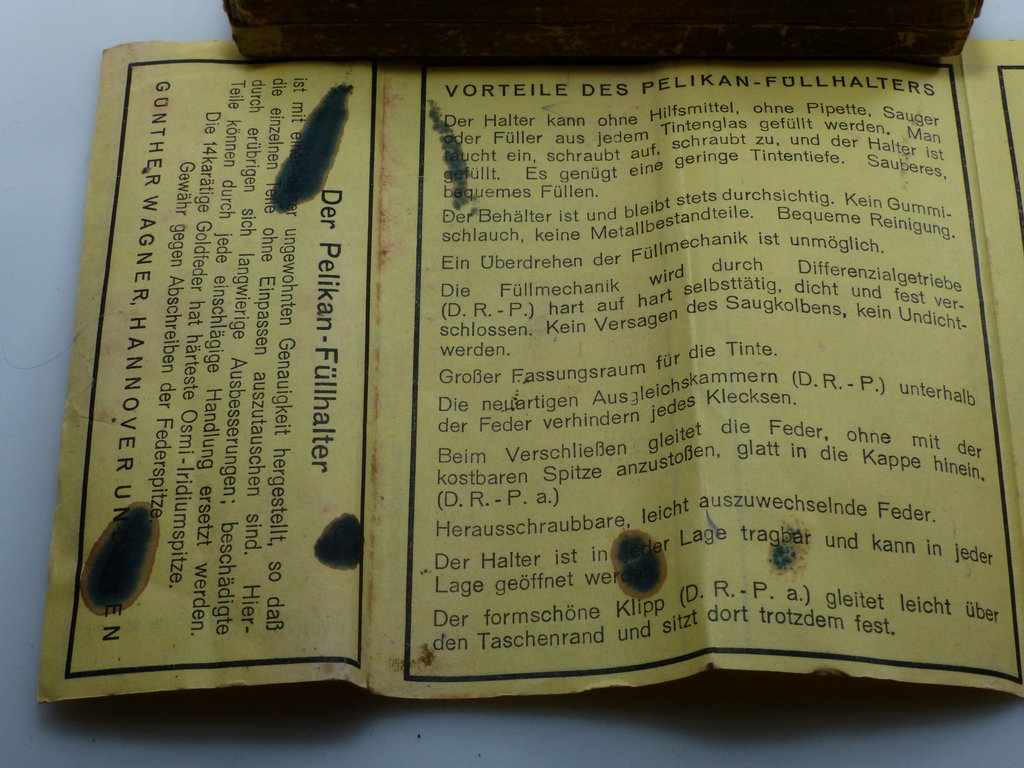 Der Pelikan-Füllhalter
ist mit ungewohnten Genauigkeit hergestellt, so daß
die einzelnen Teile ohne Einpassen auszutauschen sind. Hier-
durch erübrigen sich langwierige Ausbesserungen; beschädigte
Teile können durch jede einschlägige Handlung ersetzt werden.
Die 14karätige Goldfeder hat härteste Osmi-Iridiumspitze.
Gewähr gegen Abschreiben der Federspitze.
GÜNTHER WAGNER, HANNOVER UND
VORTEILE DES PELIKAN-FÜLLHALTERS
Der Halter kann ohne Hilfsmittel, ohne Pipette, Sauger
oder Füller aus jedem Tintenglas gefüllt werden. Man
taucht ein, schraubt auf, schraubt zu, und der Halter ist
gefüllt. Es genügt eine geringe Tintentiefe. Sauberes,
bequemes Füllen.
Der Behälter ist und bleibt stets durchsichtig. Kein Gummi-
schlauch, keine Metallbestandteile. Bequeme Reinigung.
Ein Überdrehen der Füllmechanik ist unmöglich.
Die Füllmechanik wird durch Differenzialgetriebe
(D. R. - P.) hart auf hart selbsttätig, dicht und fest ver-
schlossen. Kein Versagen des Saugkolbens, kein Undicht-
werden.
Großer Fassungsraum für die Tinte.
Die neuartigen Ausgleichskammern (D. R. - P.) unterhalb
der Feder verhindern jedes Klecksen.
Beim Verschließen gleitet die Feder, ohne mit der
kostbaren Spitze anzustoßen, glatt in die Kappe hinein.
(D. R. - P. a.)
Herausschraubbare, leicht auszuwechselnde Feder.
Der Halter ist in jeder Lage tragbar und kann in jeder
Lage geöffnet werden.
Der formschöne Klipp (D. R. - P. a.) gleitet leicht über
den Taschenrand und sitzt dort trotzdem fest.